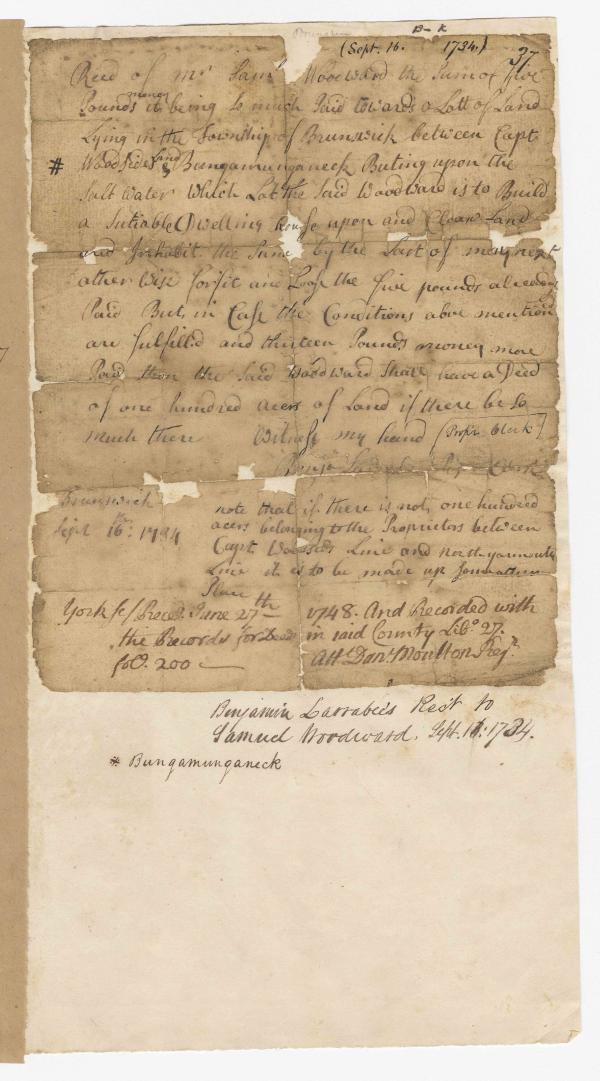 B–K
(Sept. 16. 1734.) 37.
Recd of mr Saml Woodward the Sum of five
Pounds money it being So much Paid towards a Lott of Land
Lying in the Township of Brunswick between Capt
# Woodsides Land & Bungamunganeck Buting upon the
Salt water Which Lot the Said Woodward is to Build
a Sutiable Dwelling house upon and Clear Land
and Inhabit the Same by the Last of may next
other wise forfit and Loose the five pounds already
Paid But in Case the Conditions above mentiond
are fulfilld and thirteen Pounds money more
Paid then the Said Woodward Shall have a Deed
of one hundred acers of Land if there be So
much there Witness my hand (Propr Clerk)
Clerk
Brunswick
Sept 16th: 1734
note that if there is not one hundred
acers belonging to the Proprietors between
Capt Woodsids Line and north yarmouth
Line it is to be made up Some other
Place
York sc/ Recd. June 27th 1748. And Recorded with
the Records for Deeds in said County Libo 27.
folo. 200
Att Danl Moulton Regr.
Benjamin Larrabee's Rec't to
Samuel Woodward. Sept. 16: 1734.
* Bungamunganeck